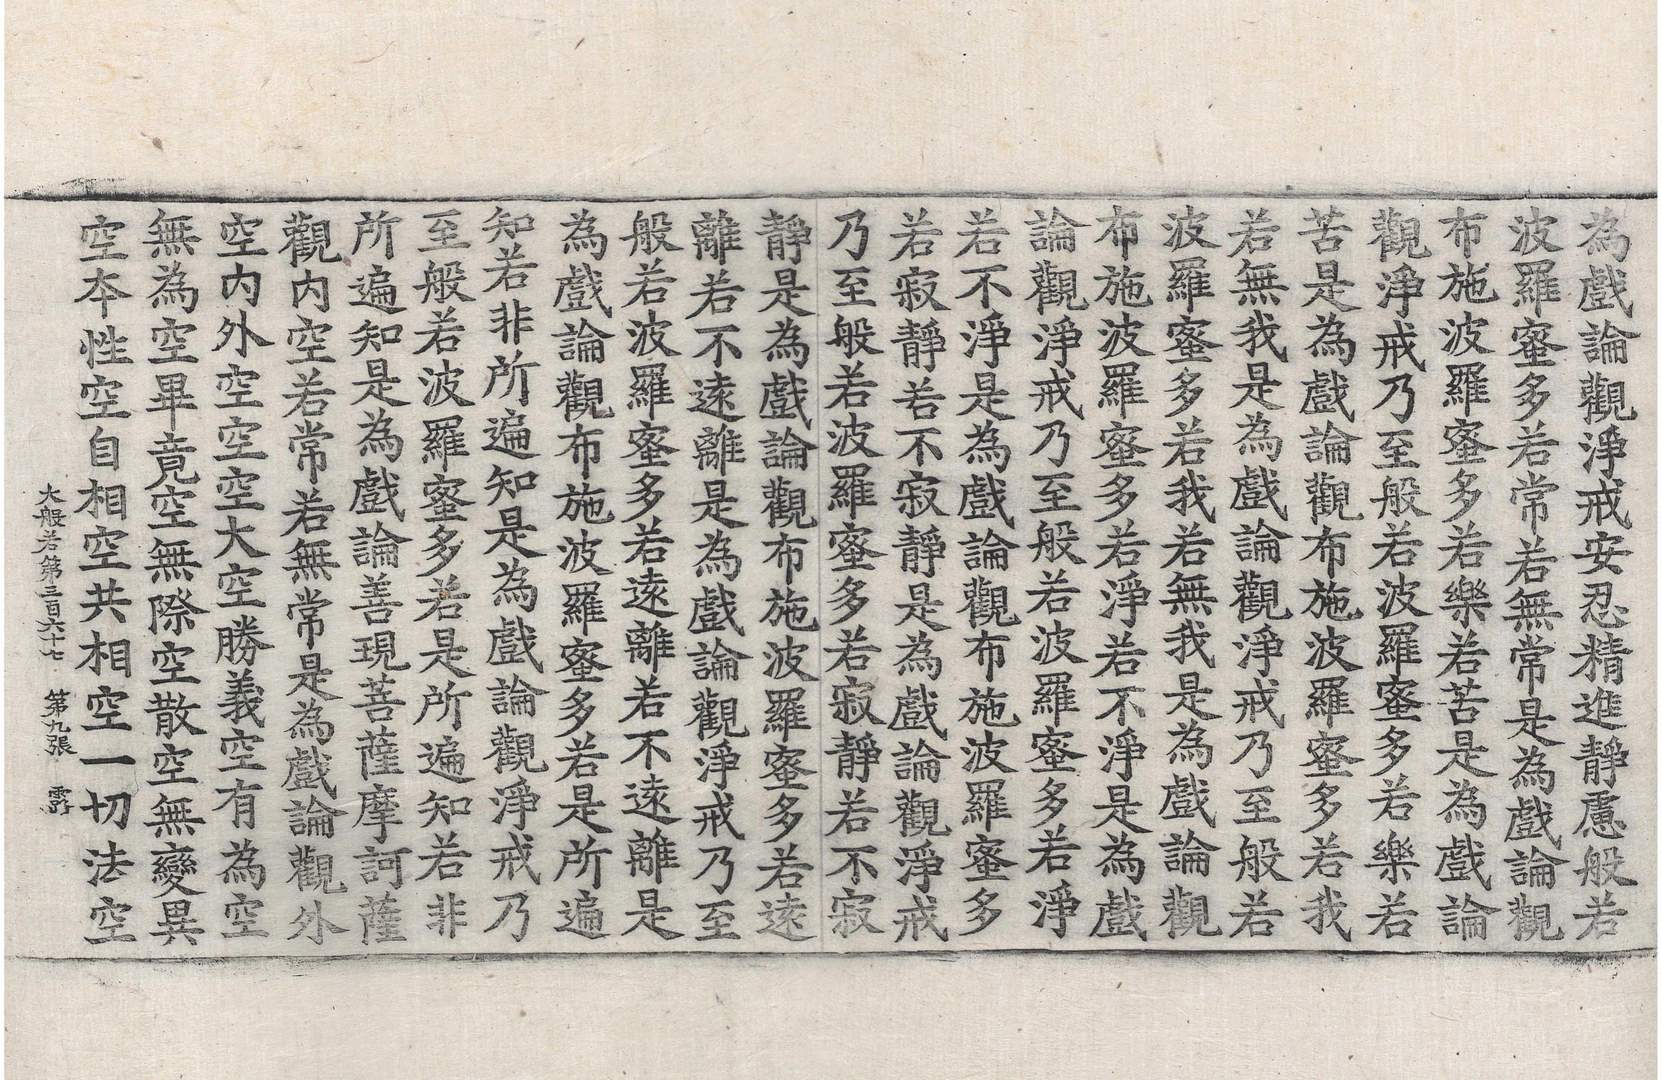 為戲論觀淨戒安忍精進靜慮般若
波羅蜜多若常若無常是為戲論觀
布施波羅蜜多若樂若苦是為戲論
觀淨戒乃至般若波羅蜜多若樂若
苦是為戲論觀布施波羅蜜多若我
若無我是為戲論觀淨戒乃至般若
波羅蜜多若我若無我是為戲論觀
布施波羅蜜多若淨若不淨是為戲
論觀淨戒乃至般若波羅蜜多若淨
若不淨是為戲論觀布施波羅蜜多
若寂靜若不寂靜是為戲論觀淨戒
乃至般若波羅蜜多若寂靜若不寂
靜是為戲論觀布施波羅蜜多若遠
離若不遠離是為戲論觀淨戒乃至
般若波羅蜜多若遠離若不遠離是
為戲論觀布施波羅蜜多若是所遍
知若非所遍知是為戲論觀淨戒乃
至般若波羅蜜多若是所遍知若非
所遍知是為戲論善現菩薩摩訶薩
觀內空若常若無常是為戲論觀外
空內外空空空大空勝義空有為空
無為空畢竟空無際空散空無變異
空本性空自相空共相空一切法空
大般若第三百六十七 第九張 露